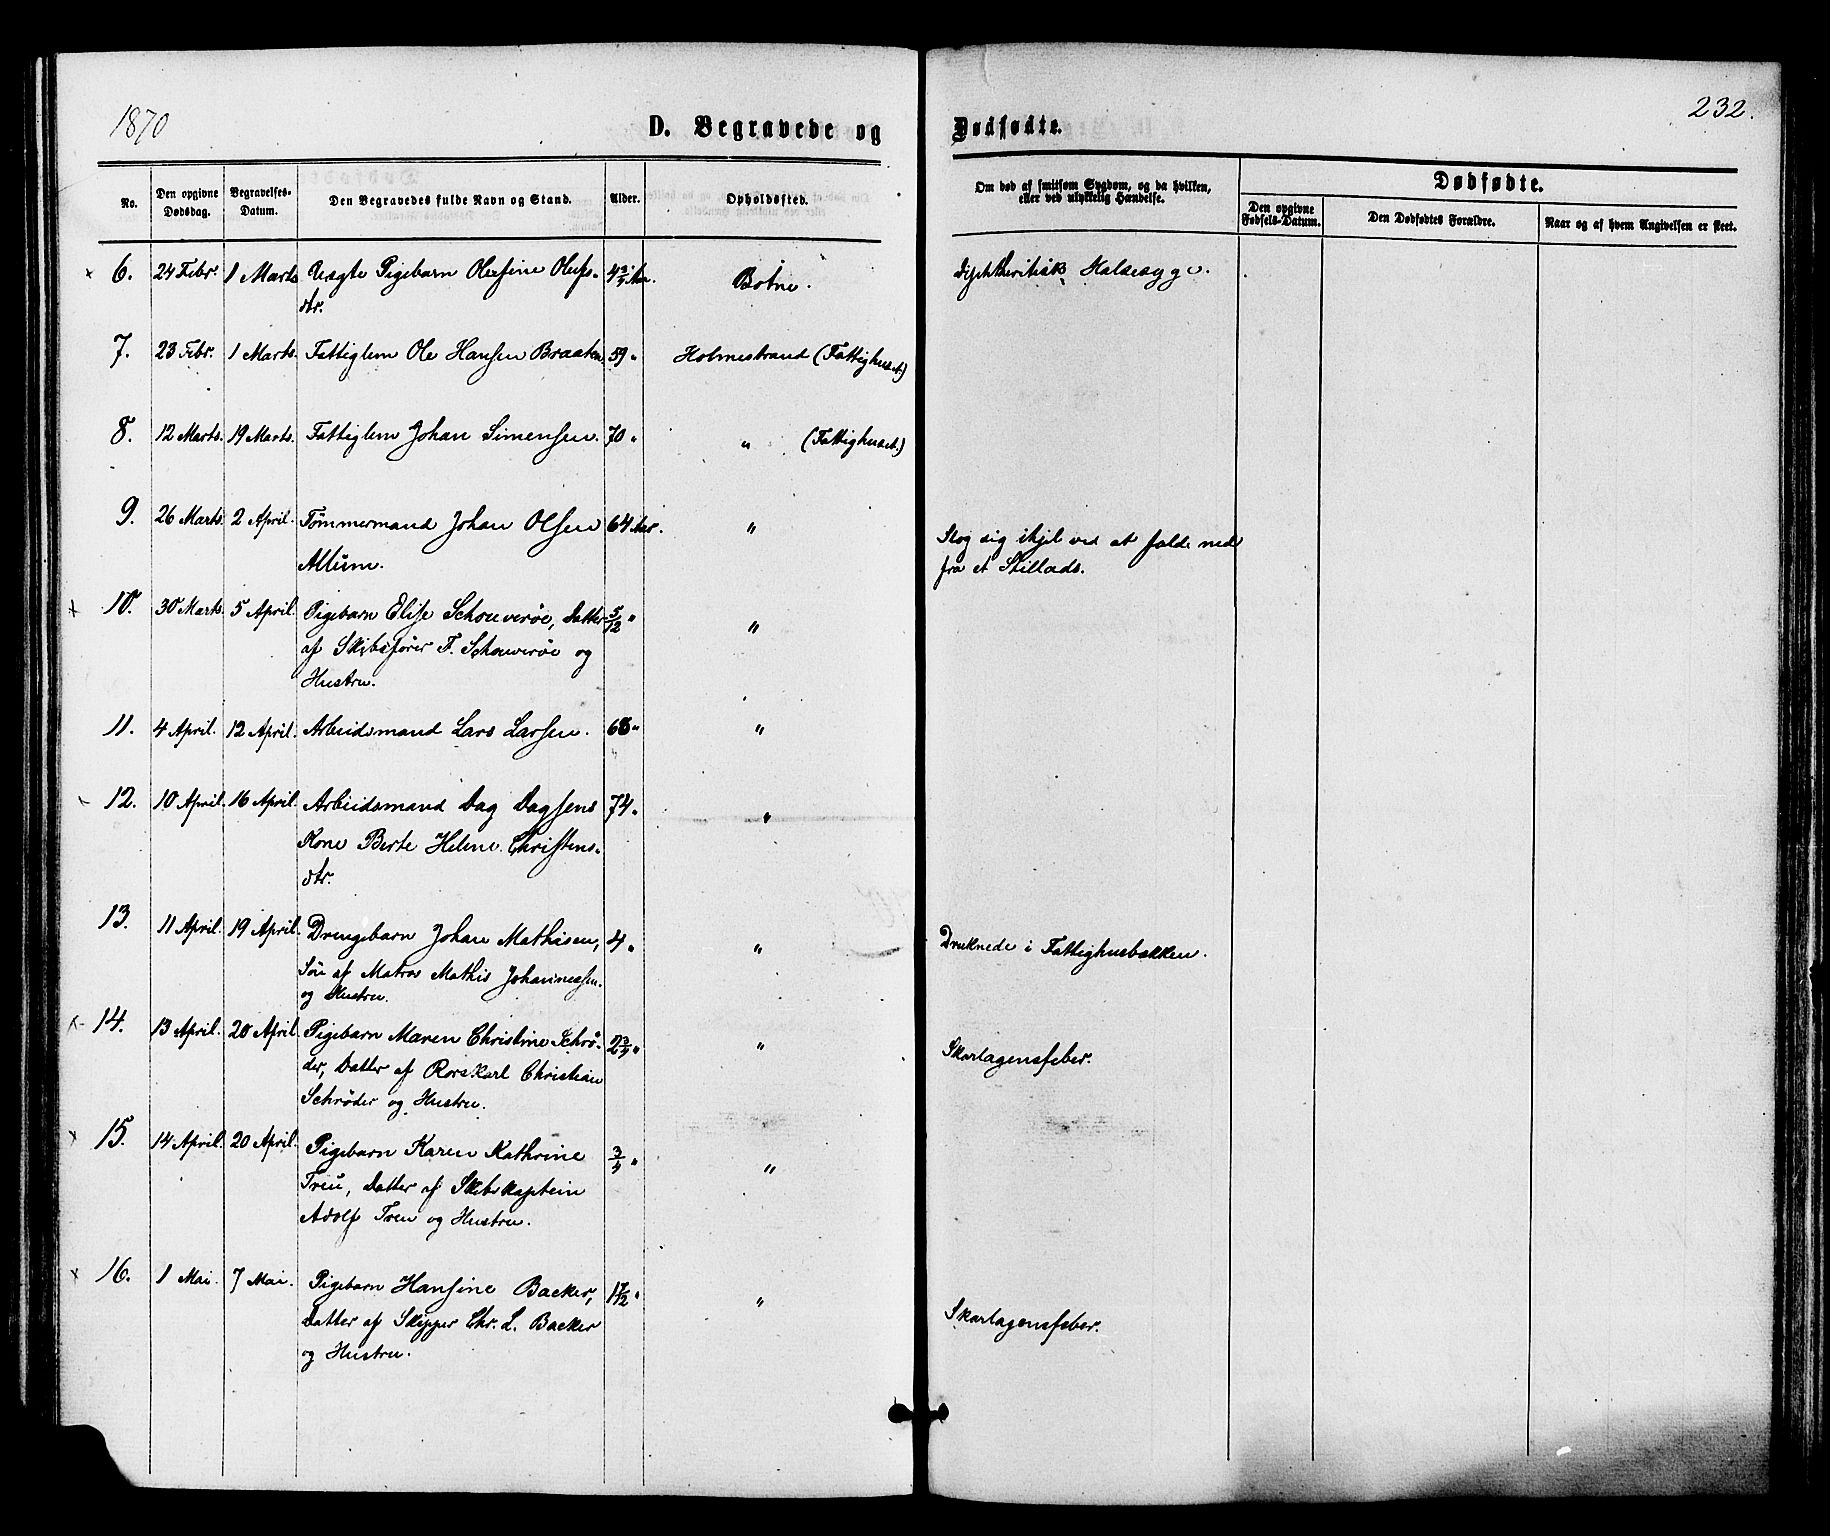 1870
D. Begravede og Dødfødte.
232.
No. Den opgivne Dødsdag. Begravelses-Datum. Den Begravedes fulde Navn og Stand. Alder. Opholdssted. Om død af smitsom Sygdom, og da hvilken, eller ved ulykkelig Hændelse. Dødfødte.
Den opgivne Fødsels-Datum. Den Dødfødtes Forældre. Naar og af hvem Angivelsen er skeet.
6. 24 Febr. 1 Marts Uægte Pigebarn Olefine Olufs- 4 3/4 Aar. Botne. diphtheritisk Halssyge.
dtr.
7. 23 Febr. 1 Marts. Fattiglem Ole Hansen Braaten 59 " Holmestrand (Fattighuset.)
8. 12 Marts. 19 Marts. Fattiglem Johan Simensen. 70 " " (Fattighuset.)
9. 26 Marts. 2 April. Tømmermand Johan Olsen 64 Aar. " Slog sig ihjel ved at falde ned
Allum. fra et Stillads.
10. 30 Marts. 5 April. Pigebarn Elise Schouverøe, Datter 5/12 " "
af Skibsfører F. Schouverøe og
Hustru.
11. 4 April. 12 April. Arbeidsmand Lars Larsen. 68 " "
12. 10 April. 16 April. Arbeidsmand Dag Dagsens 74 " "
Kone Berte Helene Christens-
dtr.
13. 11 April. 19 April. Drengebarn Johan Mathisen, 4 " " Druknede i Fattighusbækken.
Søn af Matros Mathis Johannessen
og Hustru.
14. 13 April. 20 April. Pigebarn Maren Christine Schrø- 2 3/4 " " Skarlagensfeber.
der, Datter af Rorskarl Christian
Schrøder og Hustru.
15. 14 April. 20 April. Pigebarn Karen Kathrine 3/4 " "
Treu, Datter af Skibskaptein
Adolf Treu og Hustru.
16. 1 Mai. 7 Mai. Pigebarn Hansine Backer, 1 1/2 " " Skarlagensfeber.
Datter af Skipper Chr. L. Backer
og Hustru.